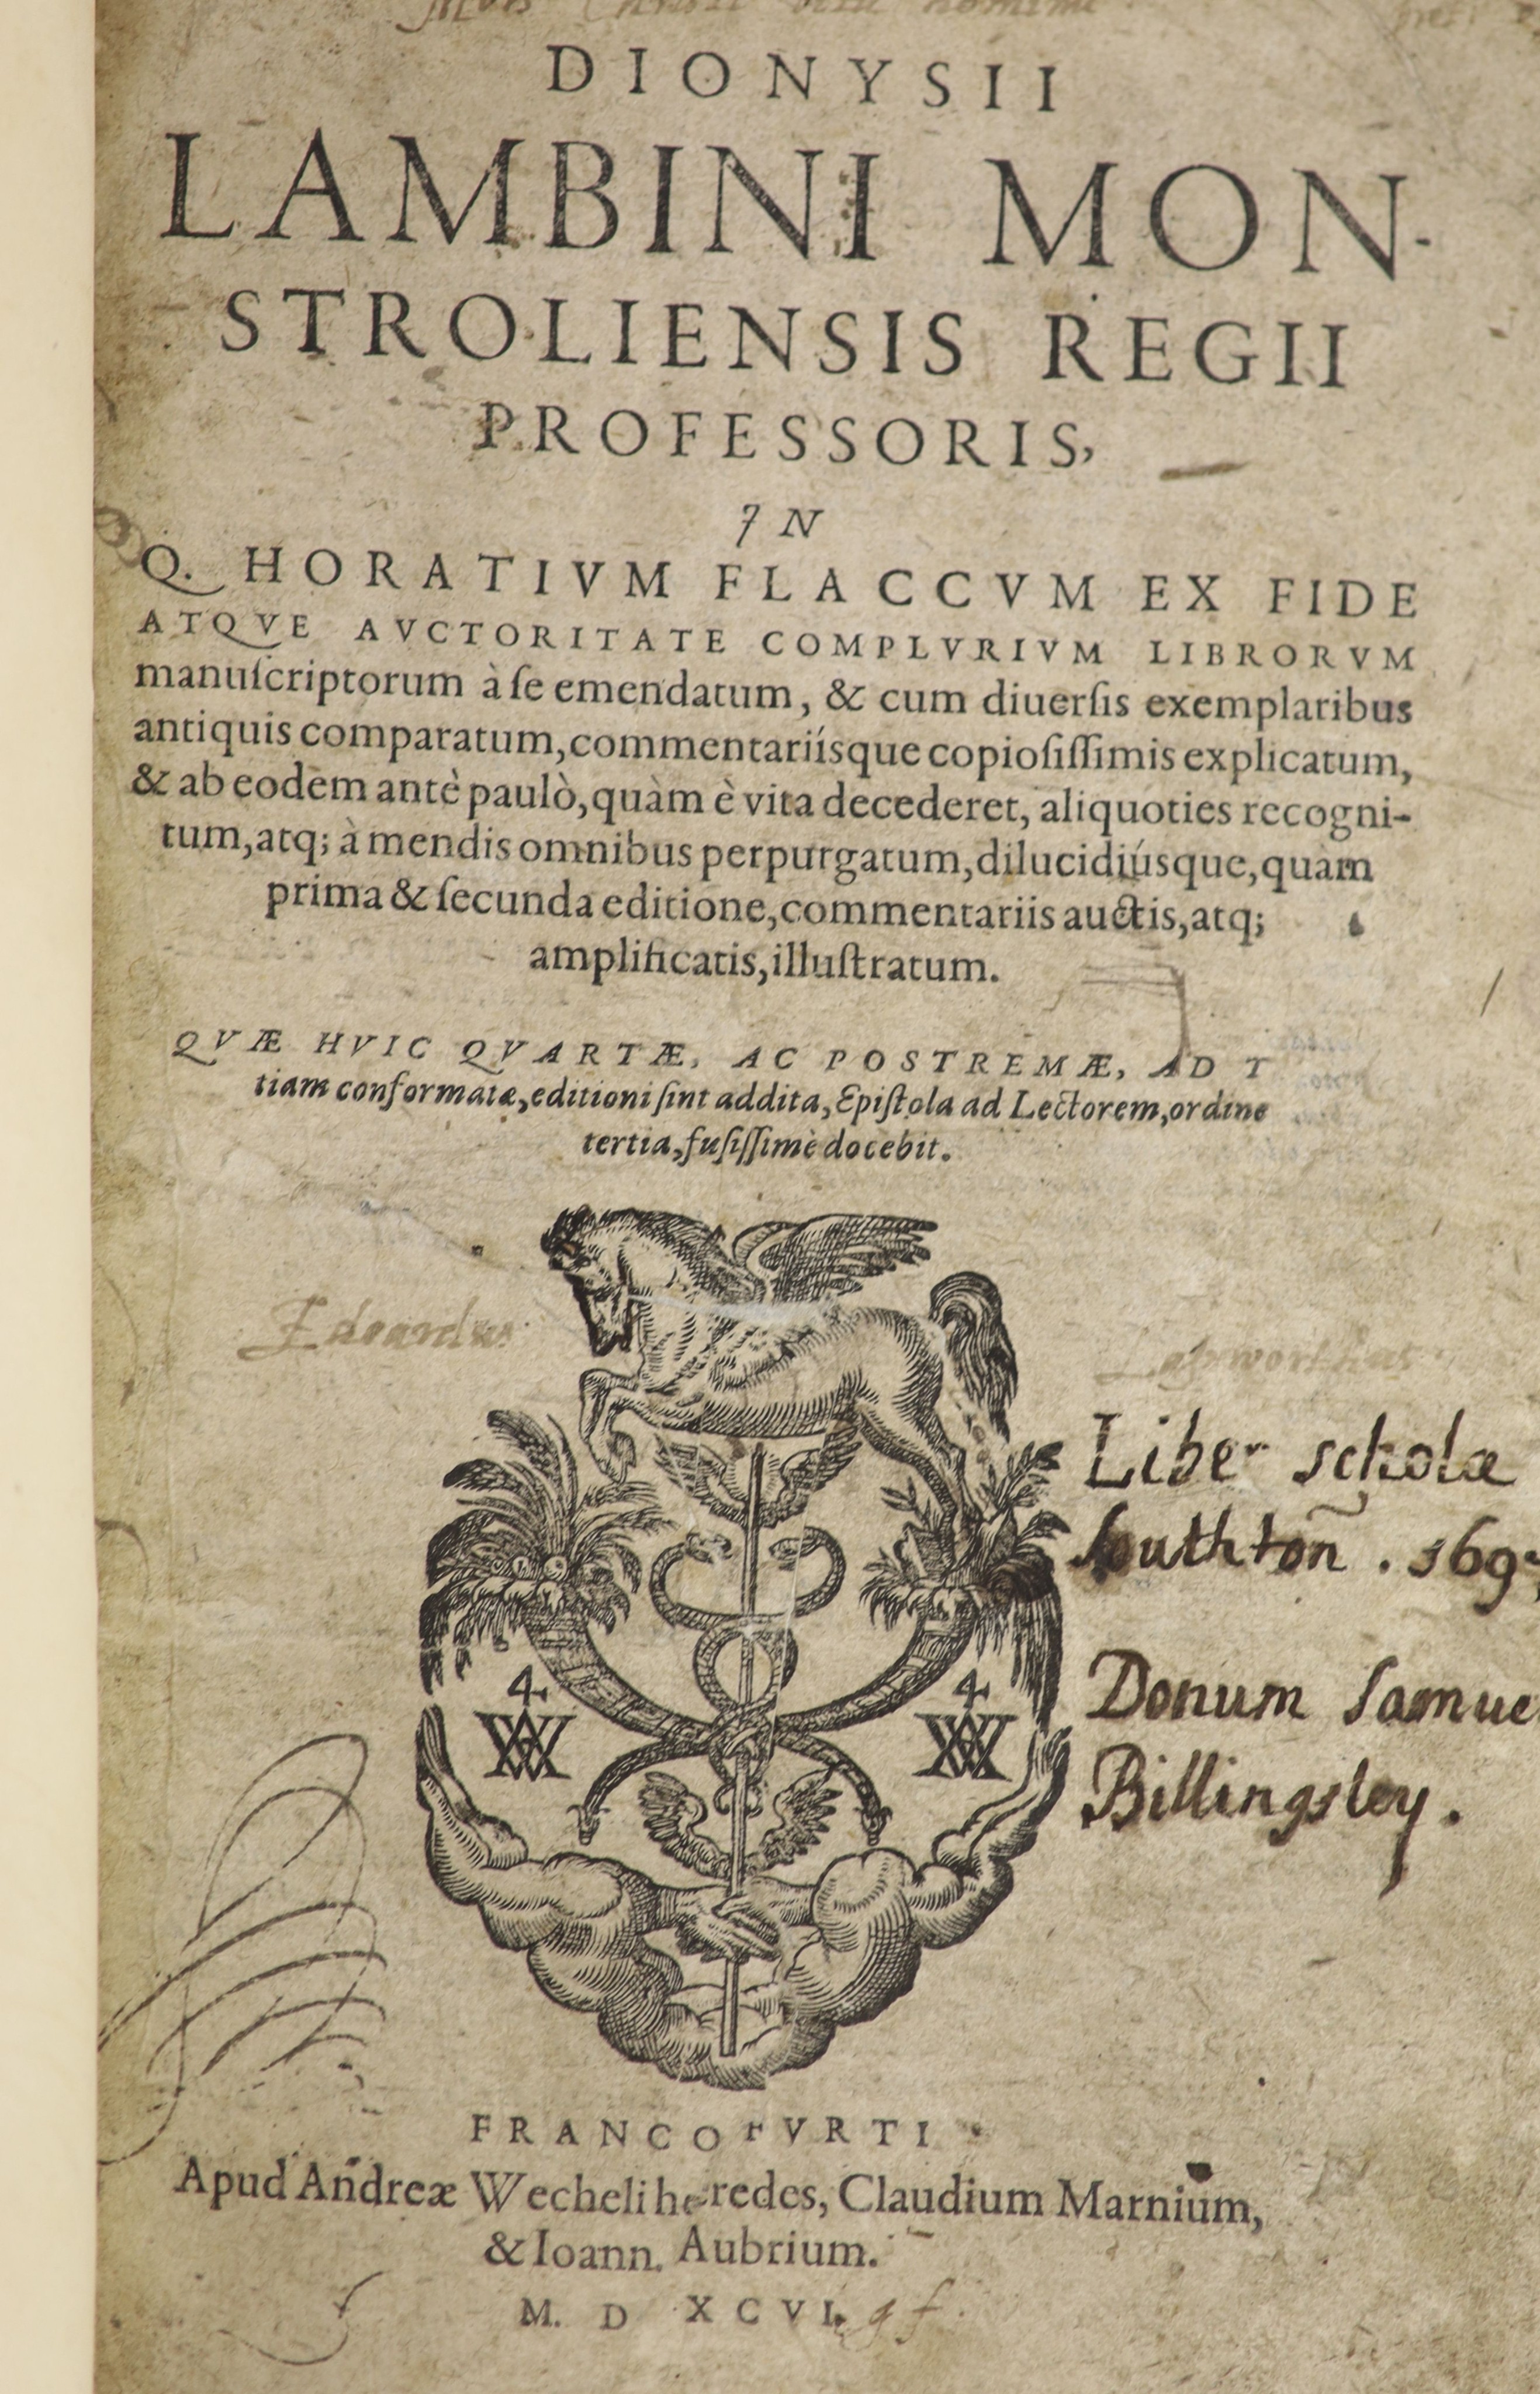 Mors Christi
DIONYSII
LAMBINI MON-
STROLIENSIS REGII
PROFESSORIS,
IN
Q. HORATIVM FLACCVM EX FIDE
ATQVE AVCTORITATE COMPLVRIVM LIBRORVM
manuſcriptorum à ſe emendatum, & cum diuerſis exemplaribus
antiquis comparatum, commentariísque copioſiſſimis explicatum,
& ab eodem antè paulò, quàm è vita decederet, aliquoties recogni-
tum, atq; à mendis omnibus perpurgatum, dilucidiúsque, quàm
prima & ſecunda editione, commentariis auctis, atq;
amplificatis, illuſtratum.
QVÆ HVIC QVARTÆ, AC POSTREMÆ, AD T
tiam conformatæ, editioni ſint addita, Epiſtola ad Lectorem, ordine
tertia, fuſiſſimè docebit.
Edoardus
Liber scholæ
Southton̄. 169
4 4
Donum Samue
Billingsley.
FRANCOFVRTI
Apud Andreæ Wecheli heredes, Claudium Marnium,
& Ioann. Aubrium.
M. D XCVI.